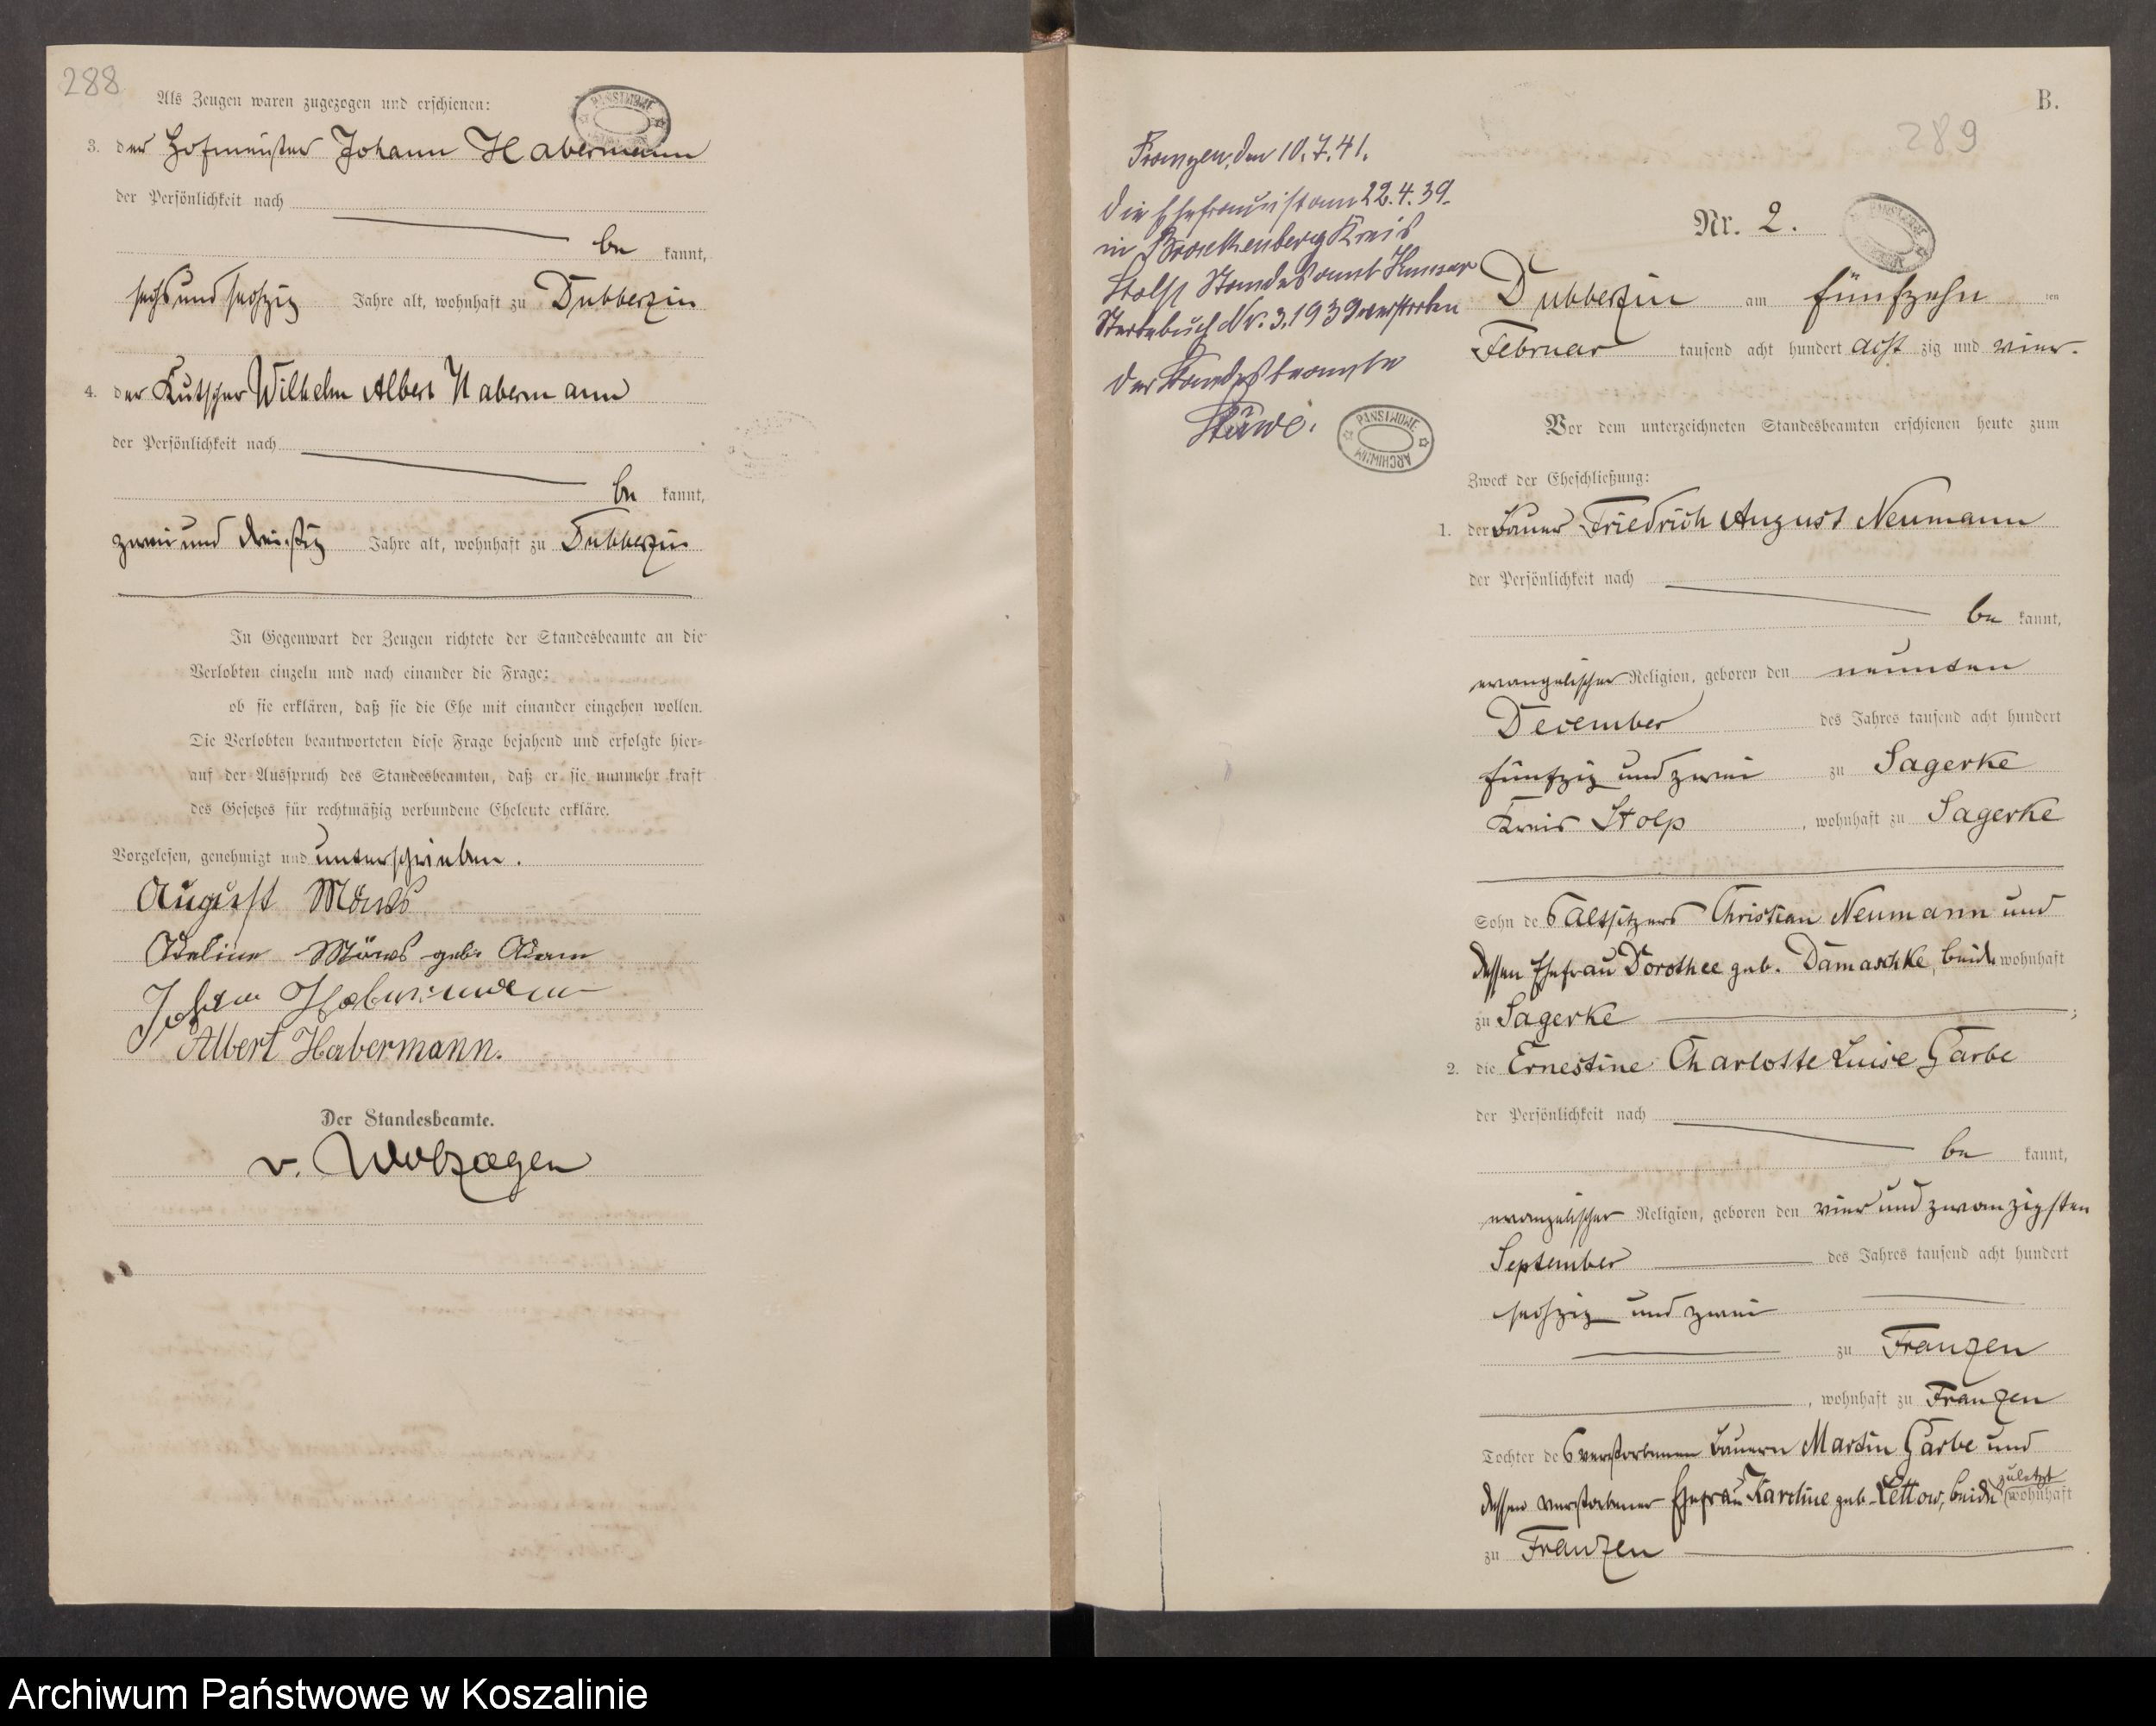 288
Als Zeugen waren zugezogen und erschienen:
PAŃSTWOWE
3. der Hofmeister Johann Habermann
der Persönlichkeit nach
be kannt,
sechs und sechzig Jahre alt, wohnhaft zu Dubberzin
4. der Kutscher Wilhelm Albert Habermann
der Persönlichkeit nach
be kannt,
zwei und dreißig Jahre alt, wohnhaft zu Dubberzin
In Gegenwart der Zeugen richtete der Standesbeamte an die
Verlobten einzeln und nach einander die Frage:
ob sie erklären, daß sie die Ehe mit einander eingehen wollen.
Die Verlobten beantworteten diese Frage bejahend und erfolgte hier-
auf der Ausspruch des Standesbeamten, daß er sie nunmehr kraft
des Gesetzes für rechtmäßig verbundene Eheleute erkläre.
Vorgelesen, genehmigt und unterschrieben.
August
geb.
Johann Habermann
Albert Habermann.
Der Standesbeamte.
v. Wolzogen
B.
289
Franzen, den 10.7.41.
Die Ehefrau ist am 22.4.39.
in Kreis
Stolp Standesamt
Sterbebuch Nr. 3.1939 verstorben
Der Standesbeamte
Stüwe.
PAŃSTWOWE
ARCHIWUM
Nr. 2.
Dubberzin am fünfzehn ten
Februar tausend acht hundert acht zig und vier.
Vor dem unterzeichneten Standesbeamten erschienen heute zum
Zweck der Eheschließung:
1. der Bauer Friedrich August Neumann
der Persönlichkeit nach
be kannt,
evangelischer Religion, geboren den neunten
December des Jahres tausend acht hundert
fünfzig und zwei zu Sagerke
Kreis Stolp, wohnhaft zu Sagerke
Sohn des Altsitzers Christian Neumann und
dessen Ehefrau Dorothee geb. Damaschke, beide wohnhaft
zu Sagerke ;
2. die Ernestine Charlotte Luise Garbe
der Persönlichkeit nach
be kannt,
evangelischer Religion, geboren den vier und zwanzigsten
September des Jahres tausend acht hundert
sechzig und zwei
zu Franzen
, wohnhaft zu Franzen
Tochter des verstorbenen Bauern Martin Garbe und
dessen verstorbener Ehefrau Karoline geb. Lettow, beide zuletzt wohnhaft
zu Franzen
Archiwum Państwowe w Koszalinie